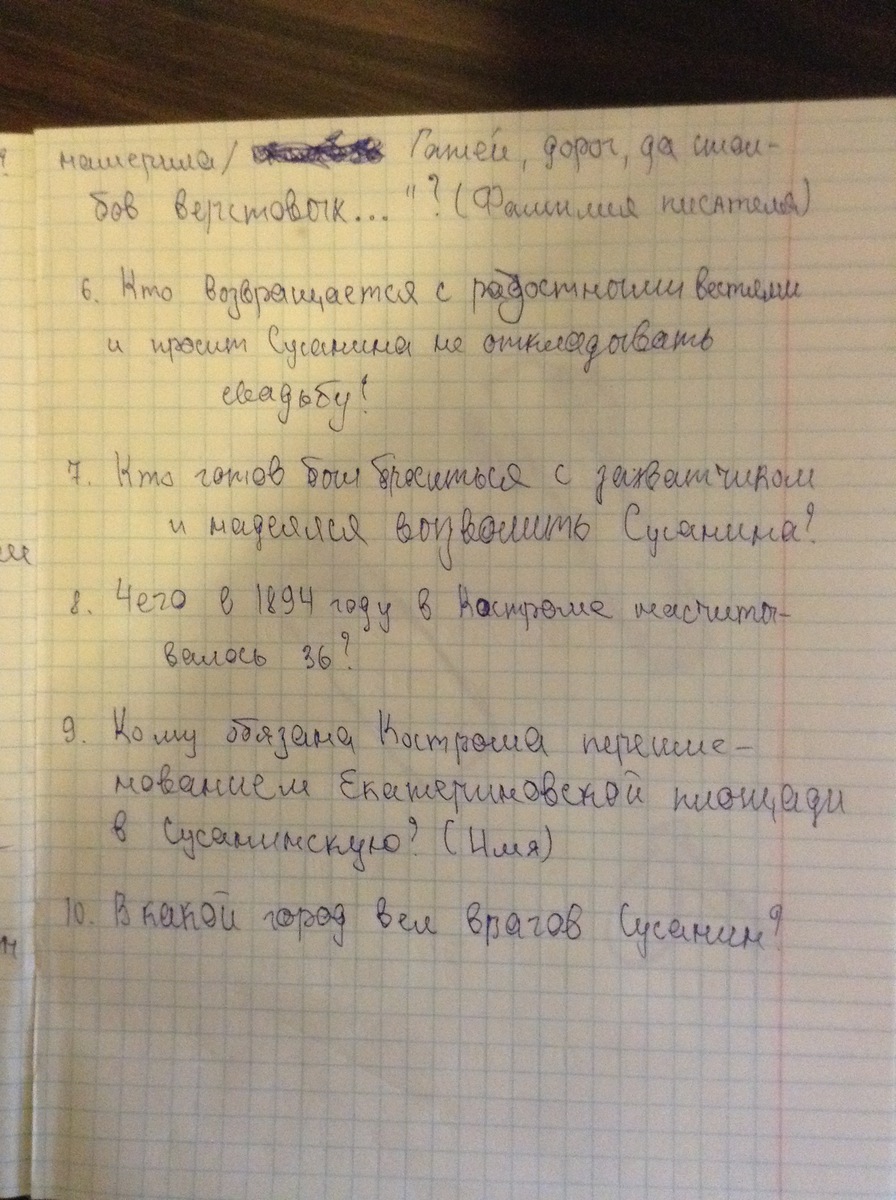 намерила/ Гатей, дорог, да стол-
бов верстовых..."? (Фамилия писателя)
6. Кто возвращается с радостными вестями
и просит Сусанина не откладывать
свадьбу?
7. Кто готов был броситься с захватчиком
и надеялся возволить Сусанина?
8. Чего в 1894 году в Костроме насчиты-
валось 36?
9. Кому обязана Кострома переиме-
нованием Екатериновской площади
в Сусанинскую? (Имя)
10. В какой город вел врагов Сусанин?